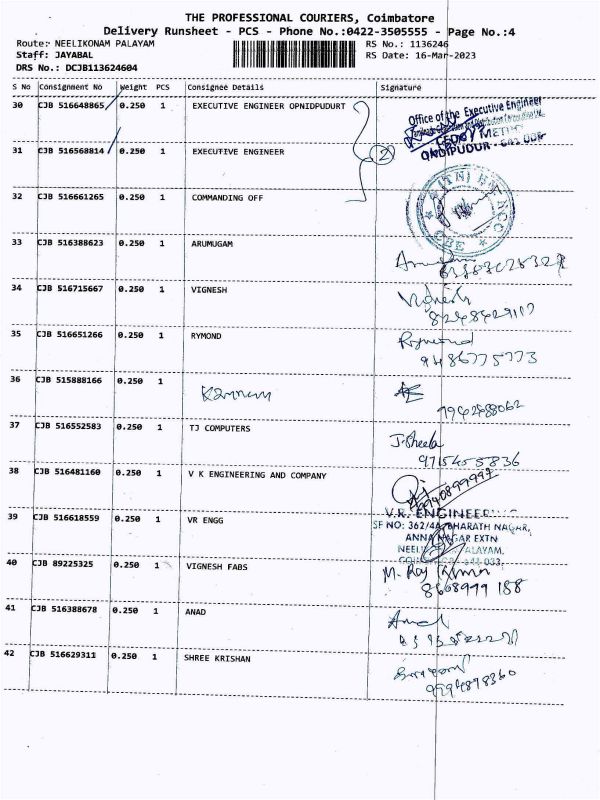 THE PROFESSIONAL COURIERS, Coimbatore
Delivery Runsheet - PCS - Phone No.:0422-3505555 - Page No.:4
Route: NEELIKONAM PALAYAM RS No.: 1136246
Staff: JAYABAL RS Date: 16-Mar-2023
DRS No.: DCJB113624604
S No Consignment No Weight PCS Consignee Details Signature
30 CJB 516648865 0.250 1 EXECUTIVE ENGINEER OPNIDPUDURT
Office of the Executive Engineer
31 CJB 516568814 0.250 1 EXECUTIVE ENGINEER 2
32 CJB 516661265 0.250 1 COMMANDING OFF
33 CJB 516388623 0.250 1 ARUMUGAM
34 CJB 516715667 0.250 1 VIGNESH Vignesh
35 CJB 516651266 0.250 1 RYMOND Raymond
9486775773
36 CJB 515888166 0.250 1 Kannan
37 CJB 516552583 0.250 1 TJ COMPUTERS J. Sheela
9715455836
38 CJB 516481160 0.250 1 V K ENGINEERING AND COMPANY
39 CJB 516618559 0.250 1 VR ENGG
V.R. ENGINEER
SF NO: 362/4A, BHARATH NAGAR,
ANNA NAGAR EXTN
40 CJB 89225325 0.250 1 VIGNESH FABS M. Raj Kumar
8668999 188
41 CJB 516388678 0.250 1 ANAD Anad
42 CJB 516629311 0.250 1 SHREE KRISHAN
9994898360